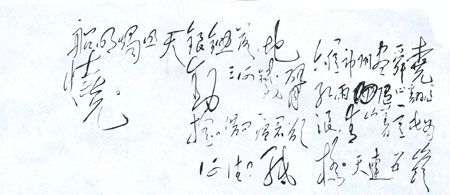 六億神州尽舜尧
红雨随心翻作
浪青山着意化为
桥天连五岭
银锄落地
动三河铁臂
摇借问瘟君欲
何往纸
船明烛照天
烧